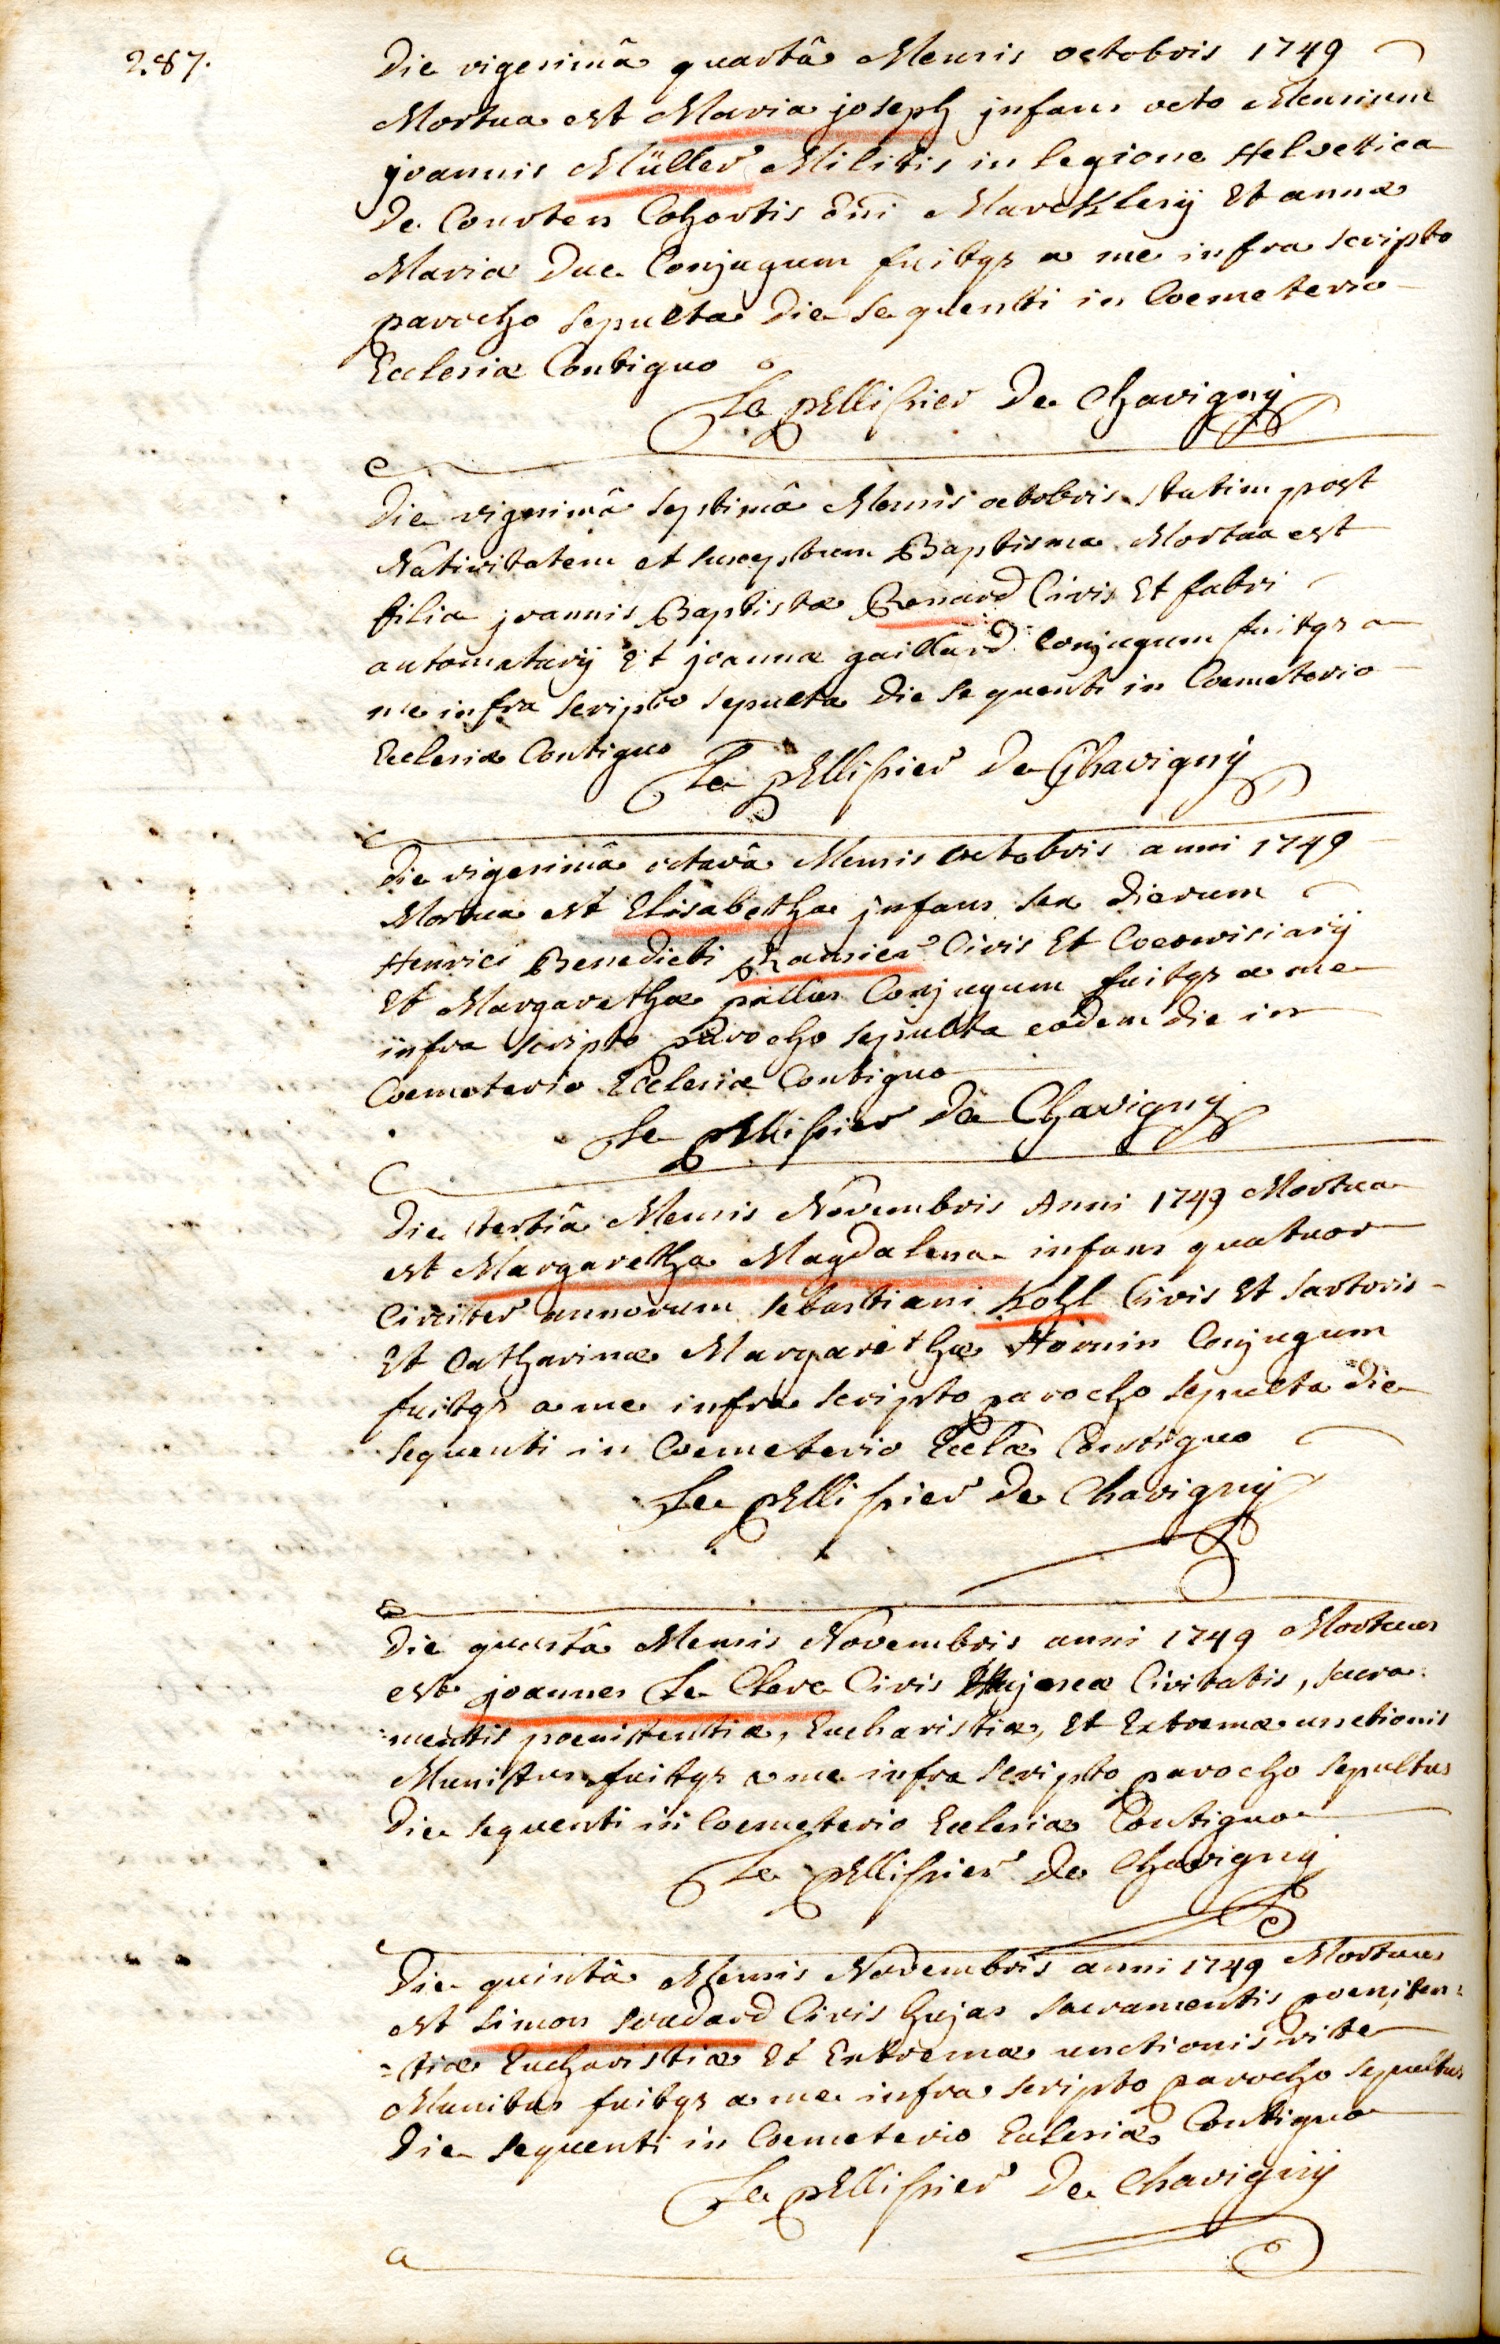 287.
Die vigesimâ quartâ Mensis octobris 1749
Mortua est Maria joseph jnfans octo Mensium
joannis Müller Militis in legione Helvettica
De Courten Cohortis dni Marcklesÿ Et annæ
Maria Duc Conjugum fuitqz a me infra scripto
parocho sepulta Die sequenti in Coemeterio
Ecclesiæ Contiguo
Le pEllissier De Chavignÿ
Die vigesimâ septimâ Mensis octobris statim post
Nativitatem et susceptum Baptisma Mortua est
filia joannis Baptistæ Renard Civis Et fabri
automatarij Et joannæ gaillard Conjugum fuitqz a
me infra scripto sepulta Die sequenti in Coemeterio
Ecclesiæ Contiguo
Le pEllissier De Chavignÿ
Die vigesimâ octavâ Mensis octobris anni 1749
Mortua est Elisabetha jnfans sex Dierum
Henrici Benedicti Civis Et
Et Margarethæ Conjugum fuitqz a me
infra scripto parocho sepulta eâdem die in
Coemeterio Ecclesiæ Contiguo
Le pEllissier De Chavignÿ
Die tertiâ Mensis Novembris Anni 1749 Mortua
est Margaretha Magdalena infans quatuor
Circiter annorum sebastiani Kohl Civis Et sartoris
Et Catharinæ Margarethæ Hornin Conjugum
fuitqz a me infra scripto parocho sepulta die
sequenti in Coemeterio Ecclæ Contiguo
Le pEllissier De Chavignÿ
Die quartâ Mensis Novembris anni 1749 Mortuus
est joannes Le Clerc Civis hujusce Civitatis, sacra:
:mentis poenitentiæ, Eucharistiæ, Et Extremæ unctionis
Munitus fuitqz a me infra scripto parocho sepultus
Die sequenti in Coemeterio Ecclesiæ Contiguo
Le pEllissier De Chavignÿ
Die quintâ Mensis Novembris anni 1749 Mortuus
est simon soudard Civis hujas sacramentis poeniten:
:tiæ Eucharistiæ Et Extremæ unctionis rite
Munitus fuitqz a me infra scripto parocho sepultus
Die sequenti in Coemeterio Ecclesiæ Contiguo
Le pEllissier De Chavignÿ